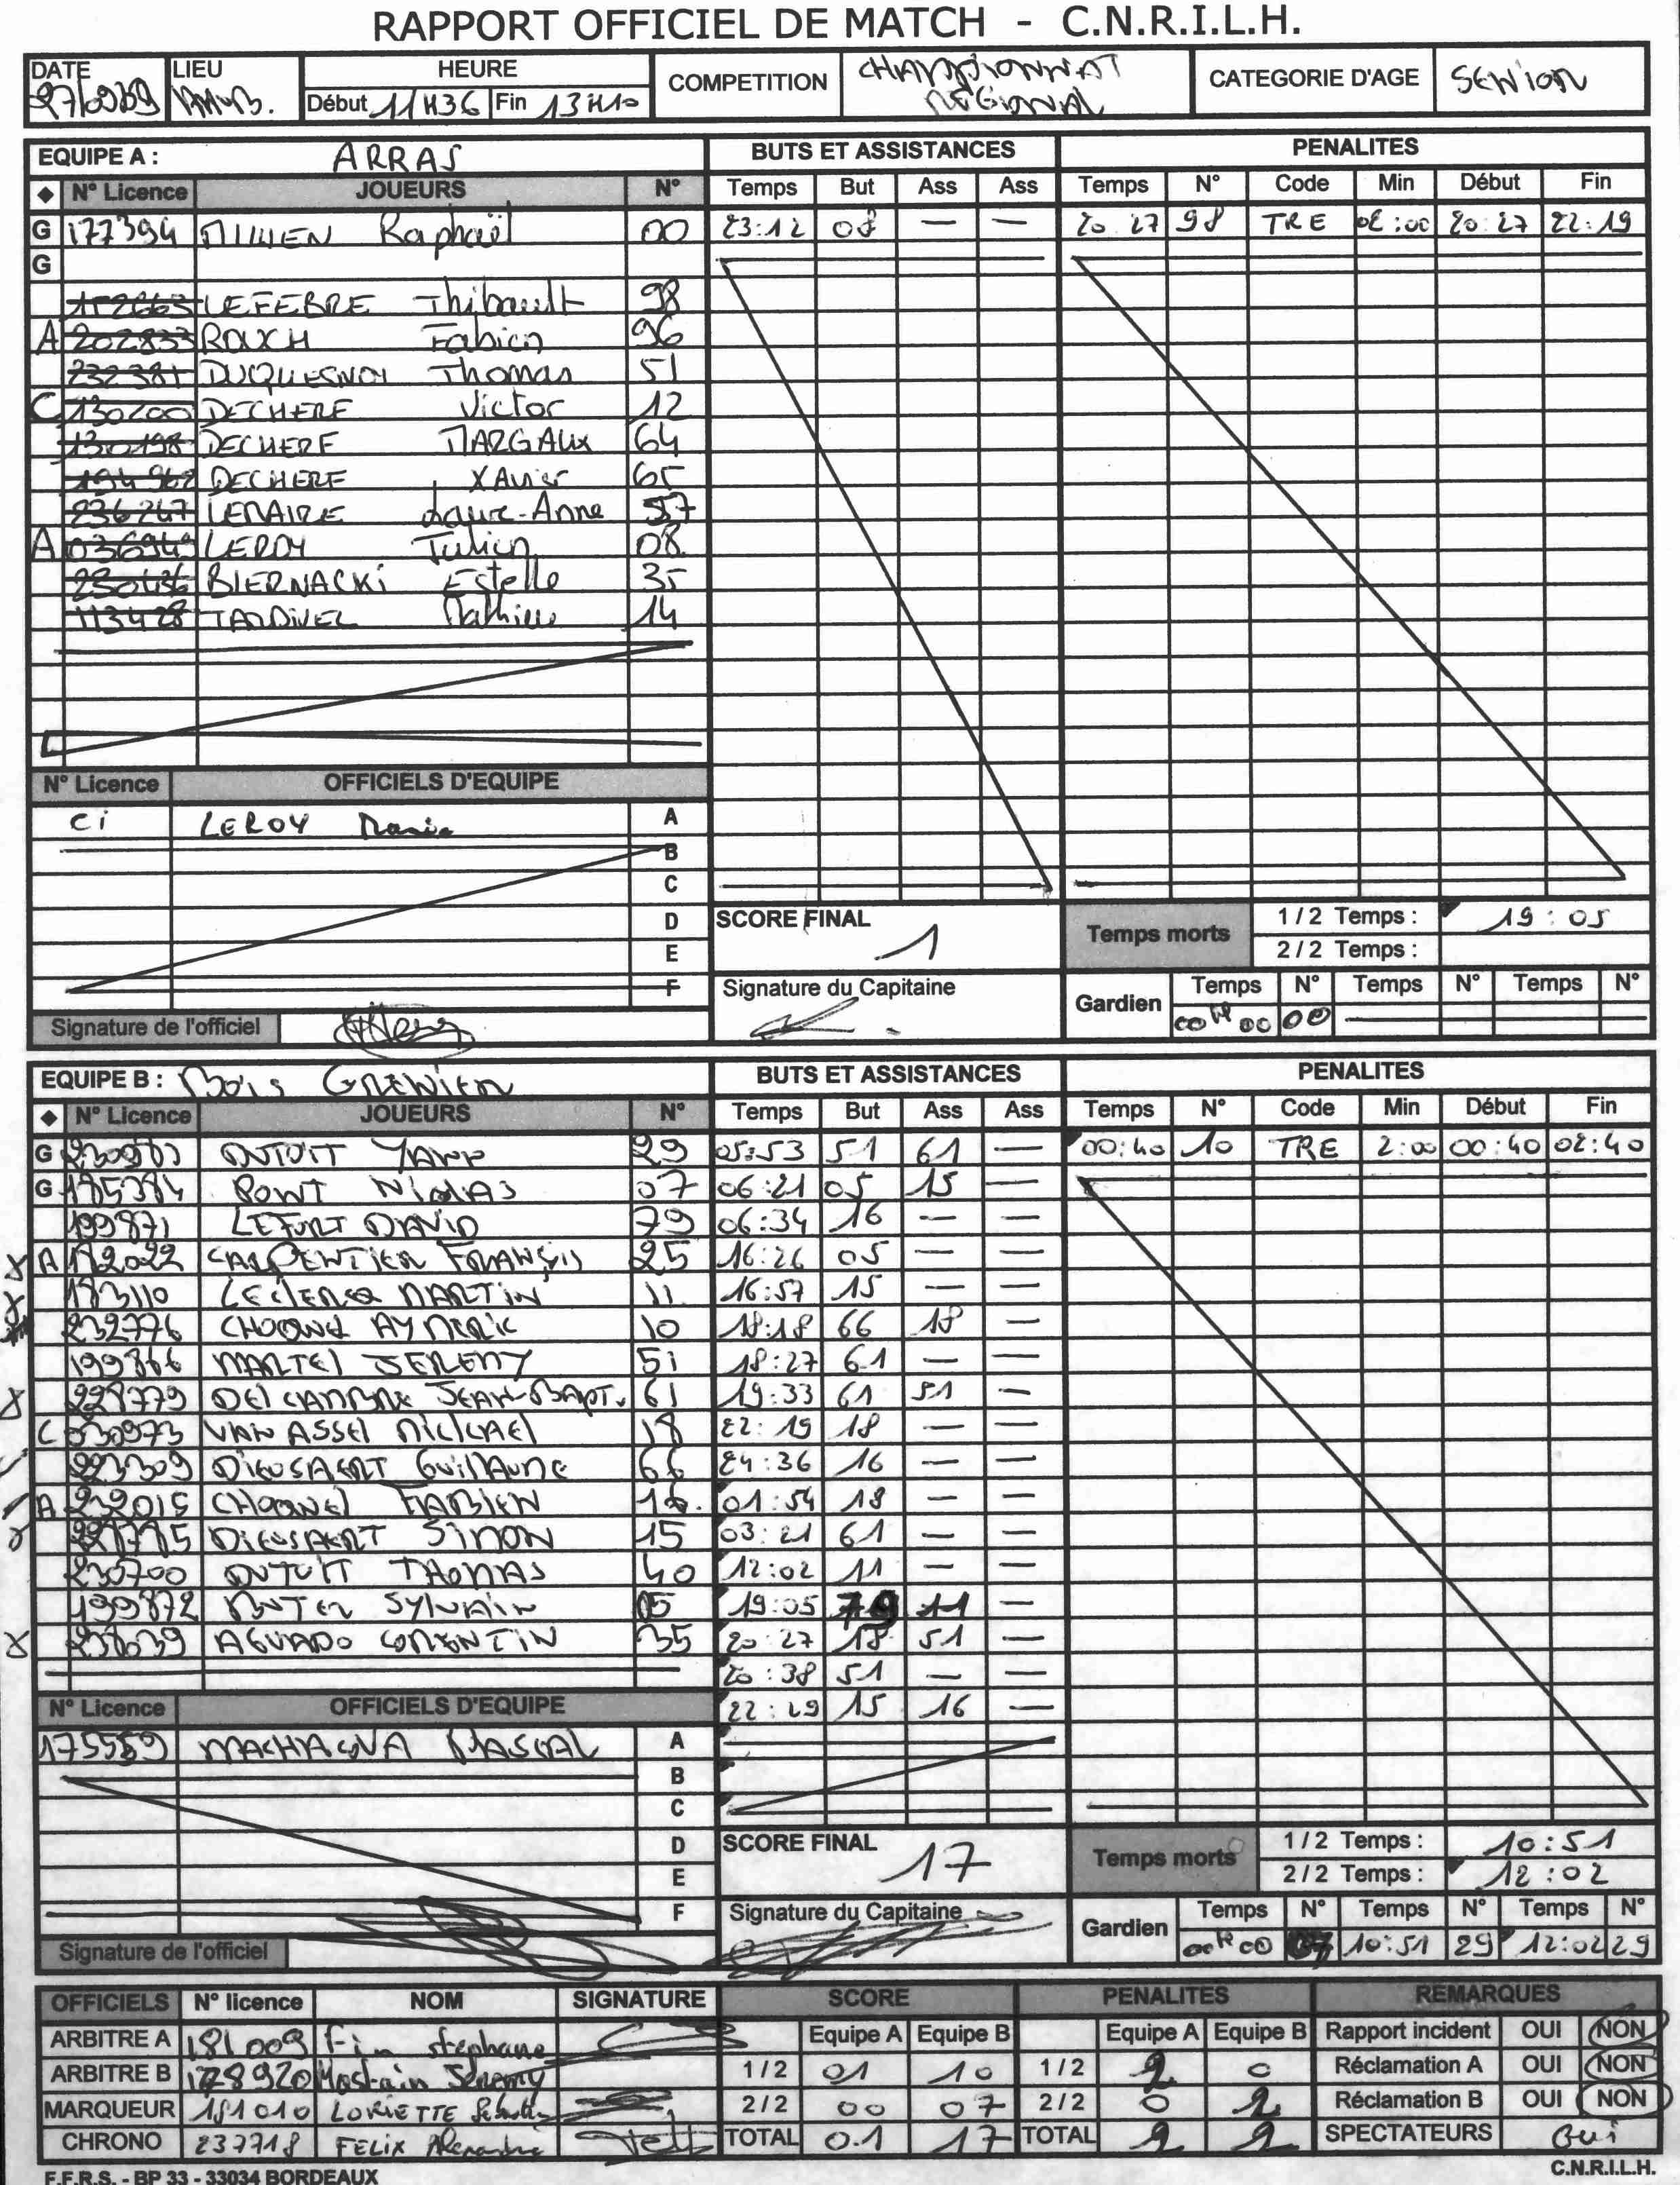 RAPPORT OFFICIEL DE MATCH - C.N.R.I.L.H.
DATE LIEU HEURE COMPETITION CHAMPIONNAT REGIONAL CATEGORIE D'AGE SENIOR
Début 11H36 Fin 13H10
EQUIPE A : ARRAS BUTS ET ASSISTANCES PENALITES
◆ N° Licence JOUEURS N° Temps But Ass Ass Temps N° Code Min Début Fin
G 177394 Raphaël 00 23:12 08 — — 20:27 98 TRE 02:00 20:27 22:19
G
LEFEBRE Thibault 98
A 202833 ROUCH Fabien 96
232381 DUQUESNOY Thomas 51
C 130200 DECHERF Victor 12
130198 DECHERF MARGAUX 64
DECHERF XAvier 65
236247 LEMAIRE Laure-Anne 57
A LEROY Julien 08
BIERNACKI Estelle 35
113428 TARDIVEL Mathieu 14
N° Licence OFFICIELS D'EQUIPE
ci LEROY A
B
C
D
E
F
SCORE FINAL 1
Temps morts 1 / 2 Temps : 19:05
2 / 2 Temps :
Signature du Capitaine
Gardien Temps N° Temps N° Temps N°
00H00 00
Signature de l'officiel
EQUIPE B : Bois GRENIER BUTS ET ASSISTANCES PENALITES
◆ N° Licence JOUEURS N° Temps But Ass Ass Temps N° Code Min Début Fin
G DUTOIT YANN 29 05:53 51 61 — 00:40 10 TRE 2:00 00:40 02:40
G 185384 PONT NICOLAS 07 06:21 05 15 —
199871 LEFORT DAVID 79 06:34 16 — —
A CARPENTIER FRANÇOIS 25 16:26 05 — —
183110 LECLERCQ MARTIN 11 16:57 15 — —
232776 CHOQUEL AYMERIC 10 18:18 66 18 —
199866 MARTEL JEREMY 51 18:27 61 — —
DELCAMBRE JEAN-BAPT. 61 19:33 61 51 —
C 030973 VAN ASSEL MICKAEL 18 22:19 18 — —
223309 DIEUSAERT GUILLAUME 66 24:36 16 — —
A 232015 CHOQUEL FABIEN 16 01:54 18 — —
DIEUSAERT SIMON 15 03:21 61 — —
230700 DUTOIT THOMAS 40 12:02 11 — —
199872 SYLVAIN 05 19:05 79 11 —
AGUADO CORENTIN 35 20:27 18 51 —
20:38 51 — —
22:29 15 16 —
N° Licence OFFICIELS D'EQUIPE
175559 PASCAL A
B
C
D
E
F
SCORE FINAL 17
Temps morts 1 / 2 Temps : 10:51
2 / 2 Temps : 12:02
Signature du Capitaine
Gardien Temps N° Temps N° Temps N°
00H00 07 10:51 29 12:02 29
Signature de l'officiel
OFFICIELS N° licence NOM SIGNATURE SCORE PENALITES REMARQUES
Equipe A Equipe B Equipe A Equipe B
ARBITRE A 181009 Fin Stephane Rapport incident OUI NON
ARBITRE B 178920 Jeremy 1/2 01 10 1/2 2 0 Réclamation A OUI NON
MARQUEUR 181010 LORIETTE 2/2 00 07 2/2 0 2 Réclamation B OUI NON
CHRONO 237718 FELIX Alexandre TOTAL 01 17 TOTAL 2 2 SPECTATEURS Oui
F.F.R.S. - BP 33 - 33034 BORDEAUX C.N.R.I.L.H.